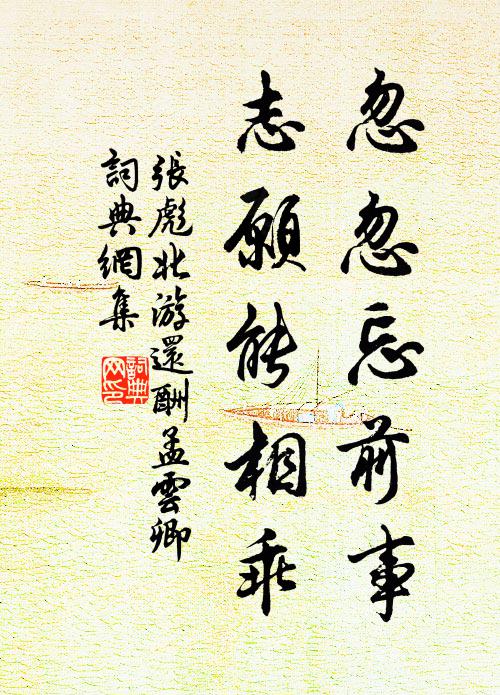 忽忽忘前事
志願能相乖
張彪北游還酬孟雲卿
詞典網集
詞典
网印